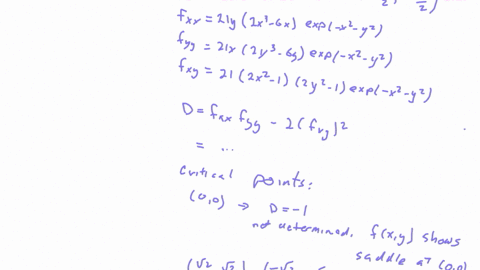 f_xx = 21y (2x³-6x) exp(-x²-y²)
f_yy = 21x (2y³-6y) exp(-x²-y²)
f_xy = 21 (2x²-1) (2y²-1) exp(-x²-y²)
D = f_xx f_yy - 2(f_xy)²
= ...
Critical points:
(0,0) → D = -1
not determined. f(x,y) shows
saddle at (0,0)